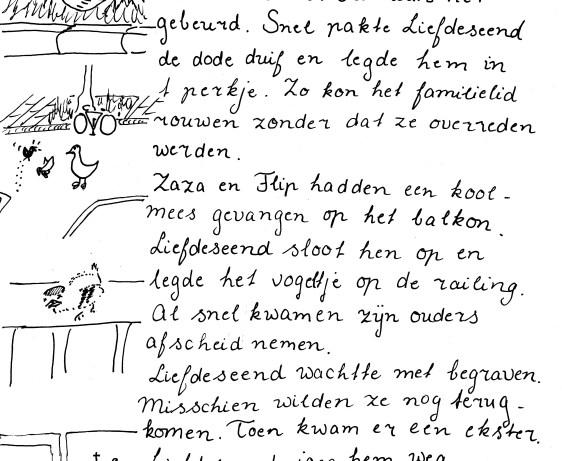 gebeurd. Snel pakte Liefdeseend
de dode duif en legde hem in
't perkje. Zo kon het familielid
rouwen zonder dat ze overreden
werden.
Zaza en Flip hadden een kool-
mees gevangen op het balkon.
Liefdeseend sloot hen op en
legde het vogeltje op de railing.
Al snel kwamen zijn ouders
afscheid nemen.
Liefdeseend wachtte met begraven.
Misschien wilden ze nog terug-
komen. Toen kwam er een ekster.
hem weg